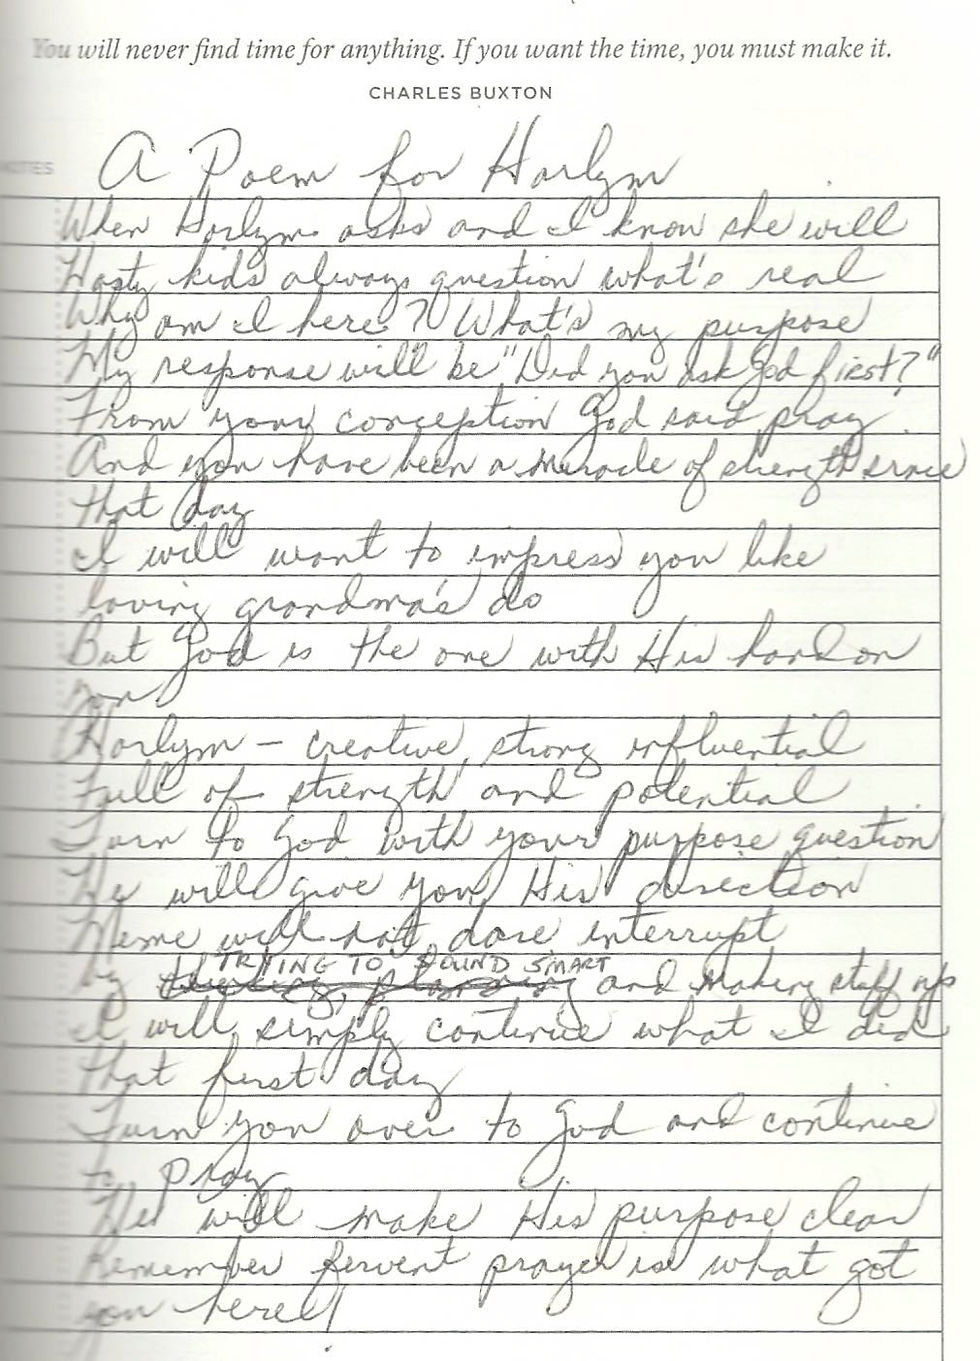 You will never find time for anything. If you want the time, you must make it.
CHARLES BUXTON
NOTES
A Poem for Harlym
When Harlym asks and I know she will
Hasty kids always question what's real
Why am I here? What's my purpose
My response will be "Did you ask God first?"
From your conception God said pray
And you have been a miracle of strength since
that day
I will want to impress you like
loving grandma's do
But God is the one with His hand on
you
Harlym – creative, strong influential
Full of strength and potential
Turn to God with your purpose question
He will give you His direction
Meme will not dare interrupt
TRYING TO SOUND SMART
by and making stuff up
I will simply continue what I did
that first day
Turn you over to God and continue
to pray
He will make His purpose clear
Remember fervent prayer is what got
you here!